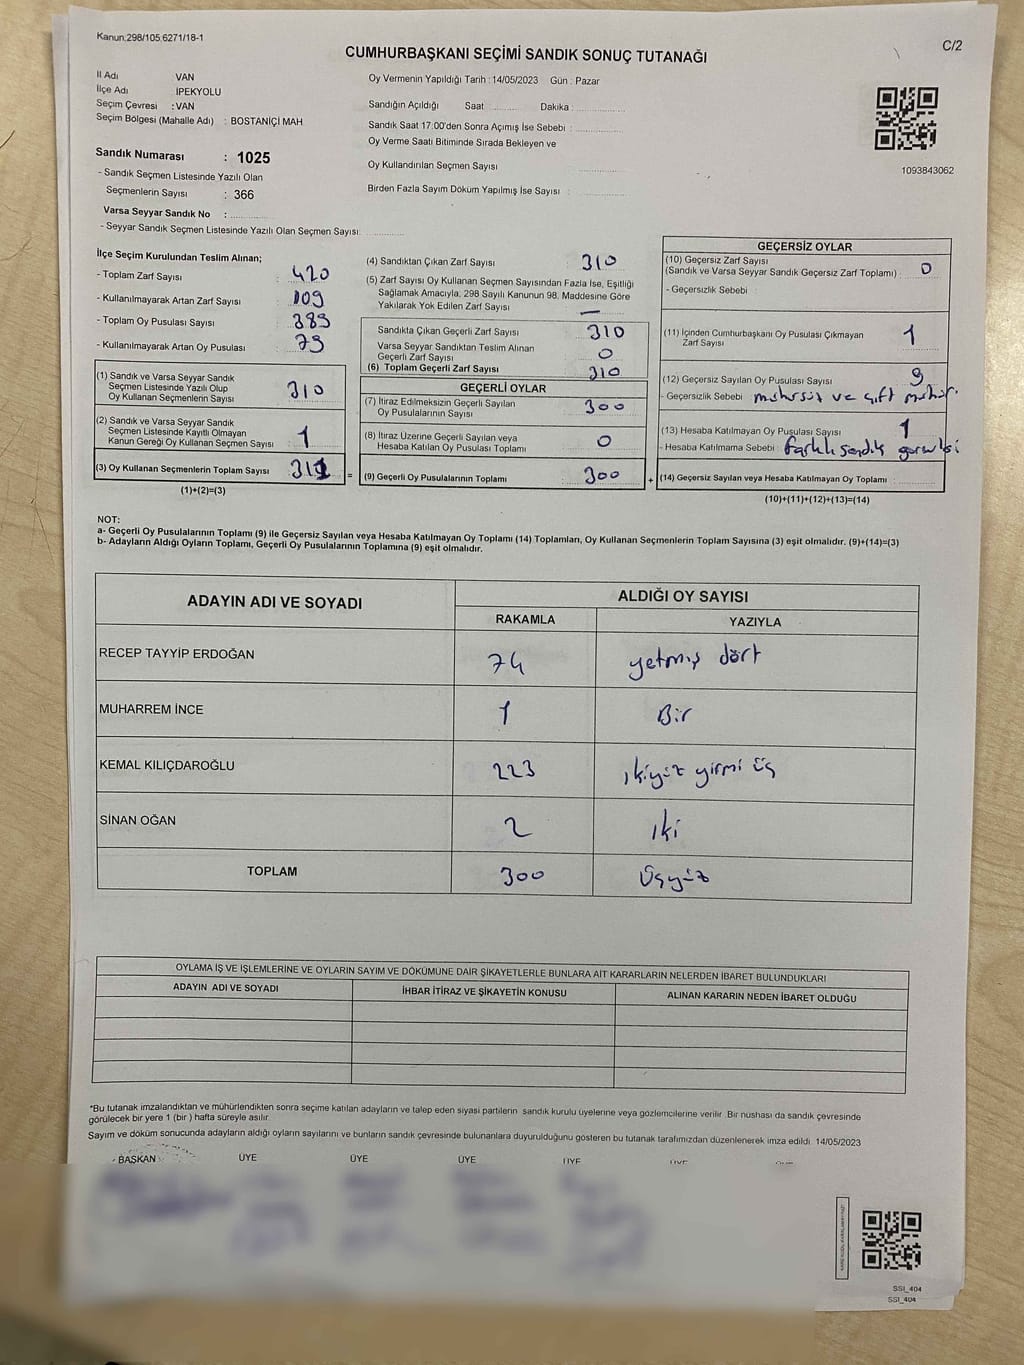 Kanun:298/105,6271/18-1
C/2
CUMHURBAŞKANI SEÇİMİ SANDIK SONUÇ TUTANAĞI
İl Adı VAN
İlçe Adı İPEKYOLU
Seçim Çevresi : VAN
Seçim Bölgesi (Mahalle Adı) : BOSTANİÇİ MAH
Sandık Numarası : 1025
- Sandık Seçmen Listesinde Yazılı Olan
Seçmenlerin Sayısı : 366
Varsa Seyyar Sandık No :
- Seyyar Sandık Seçmen Listesinde Yazılı Olan Seçmen Sayısı:
Oy Vermenin Yapıldığı Tarih : 14/05/2023 Gün : Pazar
Sandığın Açıldığı Saat Dakika :
Sandık Saat 17:00'den Sonra Açımış İse Sebebi :
Oy Verme Saati Bitiminde Sırada Bekleyen ve
Oy Kullandırılan Seçmen Sayısı
Birden Fazla Sayım Döküm Yapılmış İse Sayısı :
1093843062
İlçe Seçim Kurulundan Teslim Alınan;
- Toplam Zarf Sayısı : 420
- Kullanılmayarak Artan Zarf Sayısı : 109
- Toplam Oy Pusulası Sayısı : 383
- Kullanılmayarak Artan Oy Pusulası : 73
(1) Sandık ve Varsa Seyyar Sandık
Seçmen Listesinde Yazılı Olup
Oy Kullanan Seçmenlerin Sayısı 310
(2) Sandık ve Varsa Seyyar Sandık
Seçmen Listesinde Kayıtlı Olmayan
Kanun Gereği Oy Kullanan Seçmen Sayısı 1
(3) Oy Kullanan Seçmenlerin Toplam Sayısı 311 =
(1)+(2)=(3)
(4) Sandıktan Çıkan Zarf Sayısı 310
(5) Zarf Sayısı Oy Kullanan Seçmen Sayısından Fazla İse, Eşitliği
Sağlamak Amacıyla, 298 Sayılı Kanunun 98. Maddesine Göre
Yakılarak Yok Edilen Zarf Sayısı —
Sandıkta Çıkan Geçerli Zarf Sayısı 310
Varsa Seyyar Sandıktan Teslim Alınan
Geçerli Zarf Sayısı 0
(6) Toplam Geçerli Zarf Sayısı 310
GEÇERLİ OYLAR
(7) İtiraz Edilmeksizin Geçerli Sayılan
Oy Pusulalarının Sayısı 300
(8) İtiraz Üzerine Geçerli Sayılan veya
Hesaba Katılan Oy Pusulası Toplamı 0
(9) Geçerli Oy Pusulalarının Toplamı 300 +
GEÇERSİZ OYLAR
(10) Geçersiz Zarf Sayısı
(Sandık ve Varsa Seyyar Sandık Geçersiz Zarf Toplamı) : 0
- Geçersizlik Sebebi :
(11) İçinden Cumhurbaşkanı Oy Pusulası Çıkmayan
Zarf Sayısı 1
(12) Geçersiz Sayılan Oy Pusulası Sayısı 9
- Geçersizlik Sebebi : mühürsüz ve çift mühür.
(13) Hesaba Katılmayan Oy Pusulası Sayısı 1
- Hesaba Katılmama Sebebi : farklı sandık
(14) Geçersiz Sayılan veya Hesaba Katılmayan Oy Toplamı :
(10)+(11)+(12)+(13)=(14)
NOT:
a- Geçerli Oy Pusulalarının Toplamı (9) ile Geçersiz Sayılan veya Hesaba Katılmayan Oy Toplamı (14) Toplamları, Oy Kullanan Seçmenlerin Toplam Sayısına (3) eşit olmalıdır. (9)+(14)=(3)
b- Adayların Aldığı Oyların Toplamı, Geçerli Oy Pusulalarının Toplamına (9) eşit olmalıdır.
ADAYIN ADI VE SOYADI ALDIĞI OY SAYISI
RAKAMLA YAZIYLA
RECEP TAYYİP ERDOĞAN 74 yetmiş dört
MUHARREM İNCE 1 Bir
KEMAL KILIÇDAROĞLU 223 ikiyüz yirmi üç
SİNAN OĞAN 2 iki
TOPLAM 300 Üçyüz
OYLAMA İŞ VE İŞLEMLERİNE VE OYLARIN SAYIM VE DÖKÜMÜNE DAİR ŞİKAYETLERLE BUNLARA AİT KARARLARIN NELERDEN İBARET BULUNDUKLARI
ADAYIN ADI VE SOYADI İHBAR İTİRAZ VE ŞİKAYETİN KONUSU ALINAN KARARIN NEDEN İBARET OLDUĞU
*Bu tutanak imzalandıktan ve mühürlendikten sonra seçime katılan adayların ve talep eden siyasi partilerin sandık kurulu üyelerine veya gözlemcilerine verilir. Bir nüshası da sandık çevresinde
görülecek bir yere 1 (bir ) hafta süreyle asılır.
Sayım ve döküm sonucunda adayların aldığı oyların sayılarını ve bunların sandık çevresinde bulunanlara duyurulduğunu gösteren bu tutanak tarafımızdan düzenlenerek imza edildi. 14/05/2023
BAŞKAN ÜYE ÜYE ÜYE ÜYE ÜYE
SSI_404
SSI_404